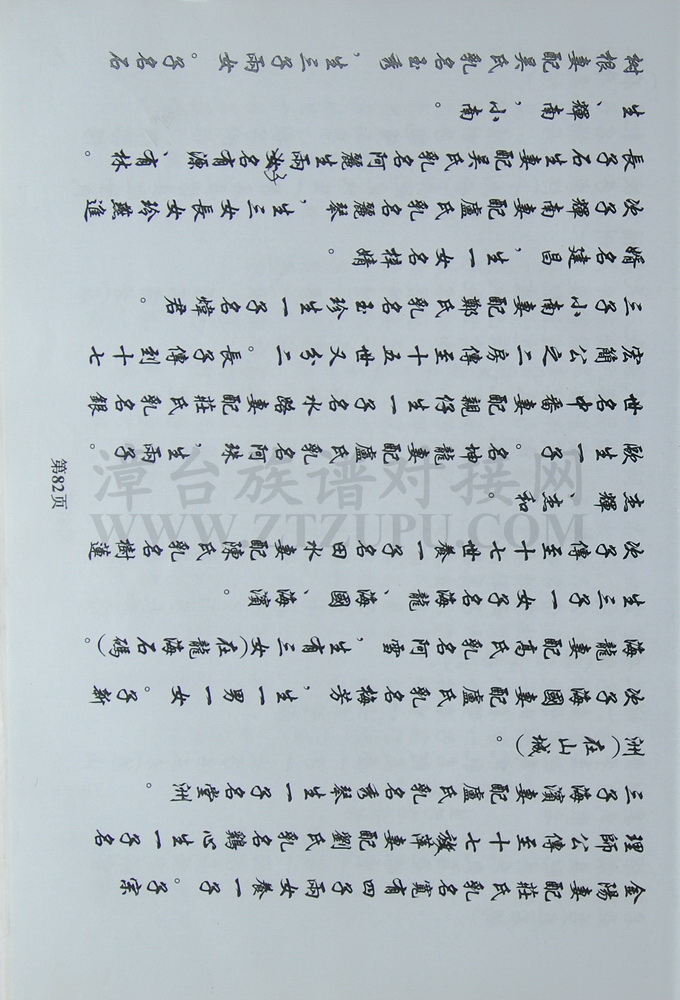 樹根妻配吳氏乳名玉秀，生三子兩女。子名石
生、輝南，小南。
長子石生妻配吳氏乳名阿麗生兩子名有源、有林。
次子輝南妻配盧氏乳名麗琴，生三女長女燕玲進
婿名建昌，生一女名梓婧
三子小南妻配鄭氏乳名玉珍生一子名煒君。
宏簡公之二房傳至十五世又分二。長子傳到十七
世名中番妻配親仔生一子名水路妻配莊氏乳名銀
歐生一子。名坤龍妻配盧氏乳名阿珠，生兩子
志輝、志和。
次子傳至十七世養一子名田水妻配陳氏乳名樹蓮
生三子一女子名海龍、海國、海濱。
海龍妻配高氏乳名阿雪，生有三女(在龍海石碼)。
次子海國妻配盧氏乳名梅芳，生一男一女。子新
洲(在山城)。
三子海濱妻配盧氏乳名秀琴生一子名堂洲。
理師公傳至十七旗萍妻配劉氏乳名鷄心生一子名
金陽妻配莊氏乳名寬有四子兩女養一子。子宗
第82页
漳台族谱对接网
WWW.ZTZUPU.COM